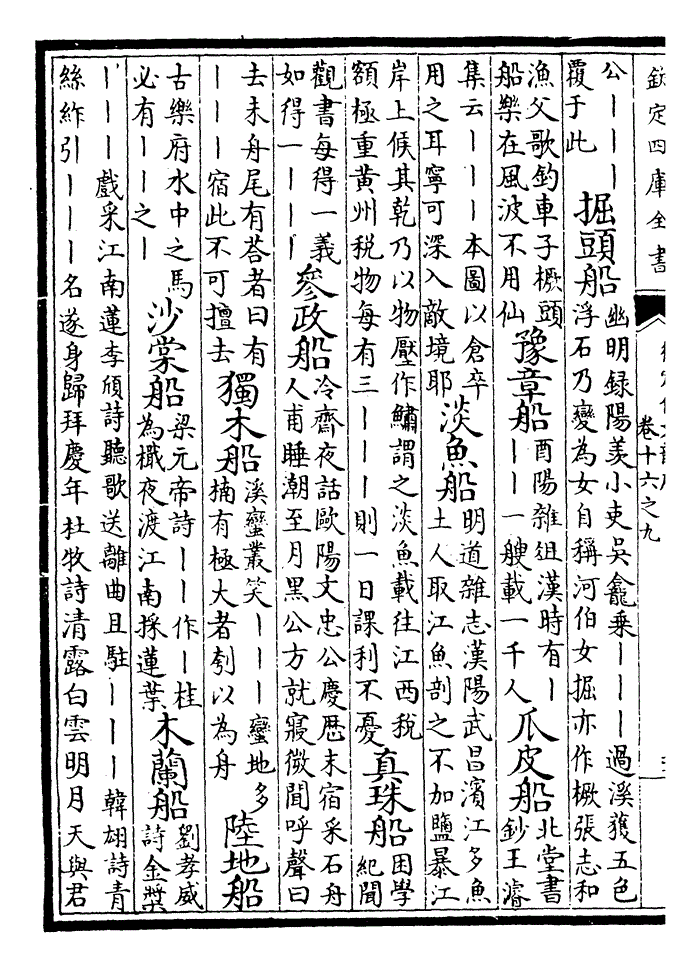 欽定四庫全書
卷十六之九
公丨丨丨
覆于此
掘頭船
幽明録陽羨小吏吳龕乗丨丨丨過溪獲五色
浮石乃變為女自稱河伯女掘亦作橛張志和
漁父歌釣車子橛頭
船樂在風波不用仙
豫章船
酉陽雜俎漢時有丨
丨丨一艘載一千人
瓜皮船
北堂書
鈔王濬
集云丨丨丨本圖以倉卒
用之耳寧可深入敵境耶
淡魚船
明道雜志漢陽武昌濱江多魚
土人取江魚剖之不加鹽暴江
岸上候其乾乃以物壓作鱐謂之淡魚載往江西税
額極重黄州税物每有三丨丨丨則一日課利不憂
真珠船
困學
紀聞
觀書每得一義
如得一丨丨丨
參政船
冷齋夜話歐陽文忠公慶厯末宿采石舟
人甫睡潮至月黑公方就寢微聞呼聲曰
去未舟尾有荅者曰有
丨丨丨宿此不可擅去
獨木船
溪蠻叢笑丨丨丨蠻地多
楠有極大者刳以為舟
陸地船
古樂府水中之馬
必有丨丨之丨
沙棠船
梁元帝詩丨丨作丨桂
為檝夜渡江南採蓮葉
木蘭船
劉孝威
詩金槳
丨丨丨戲采江南蓮李頎詩聽歌送離曲且駐丨丨丨韓翃詩青
絲䋏引丨丨丨名遂身歸拜慶年杜牧詩清露白雲明月天與君